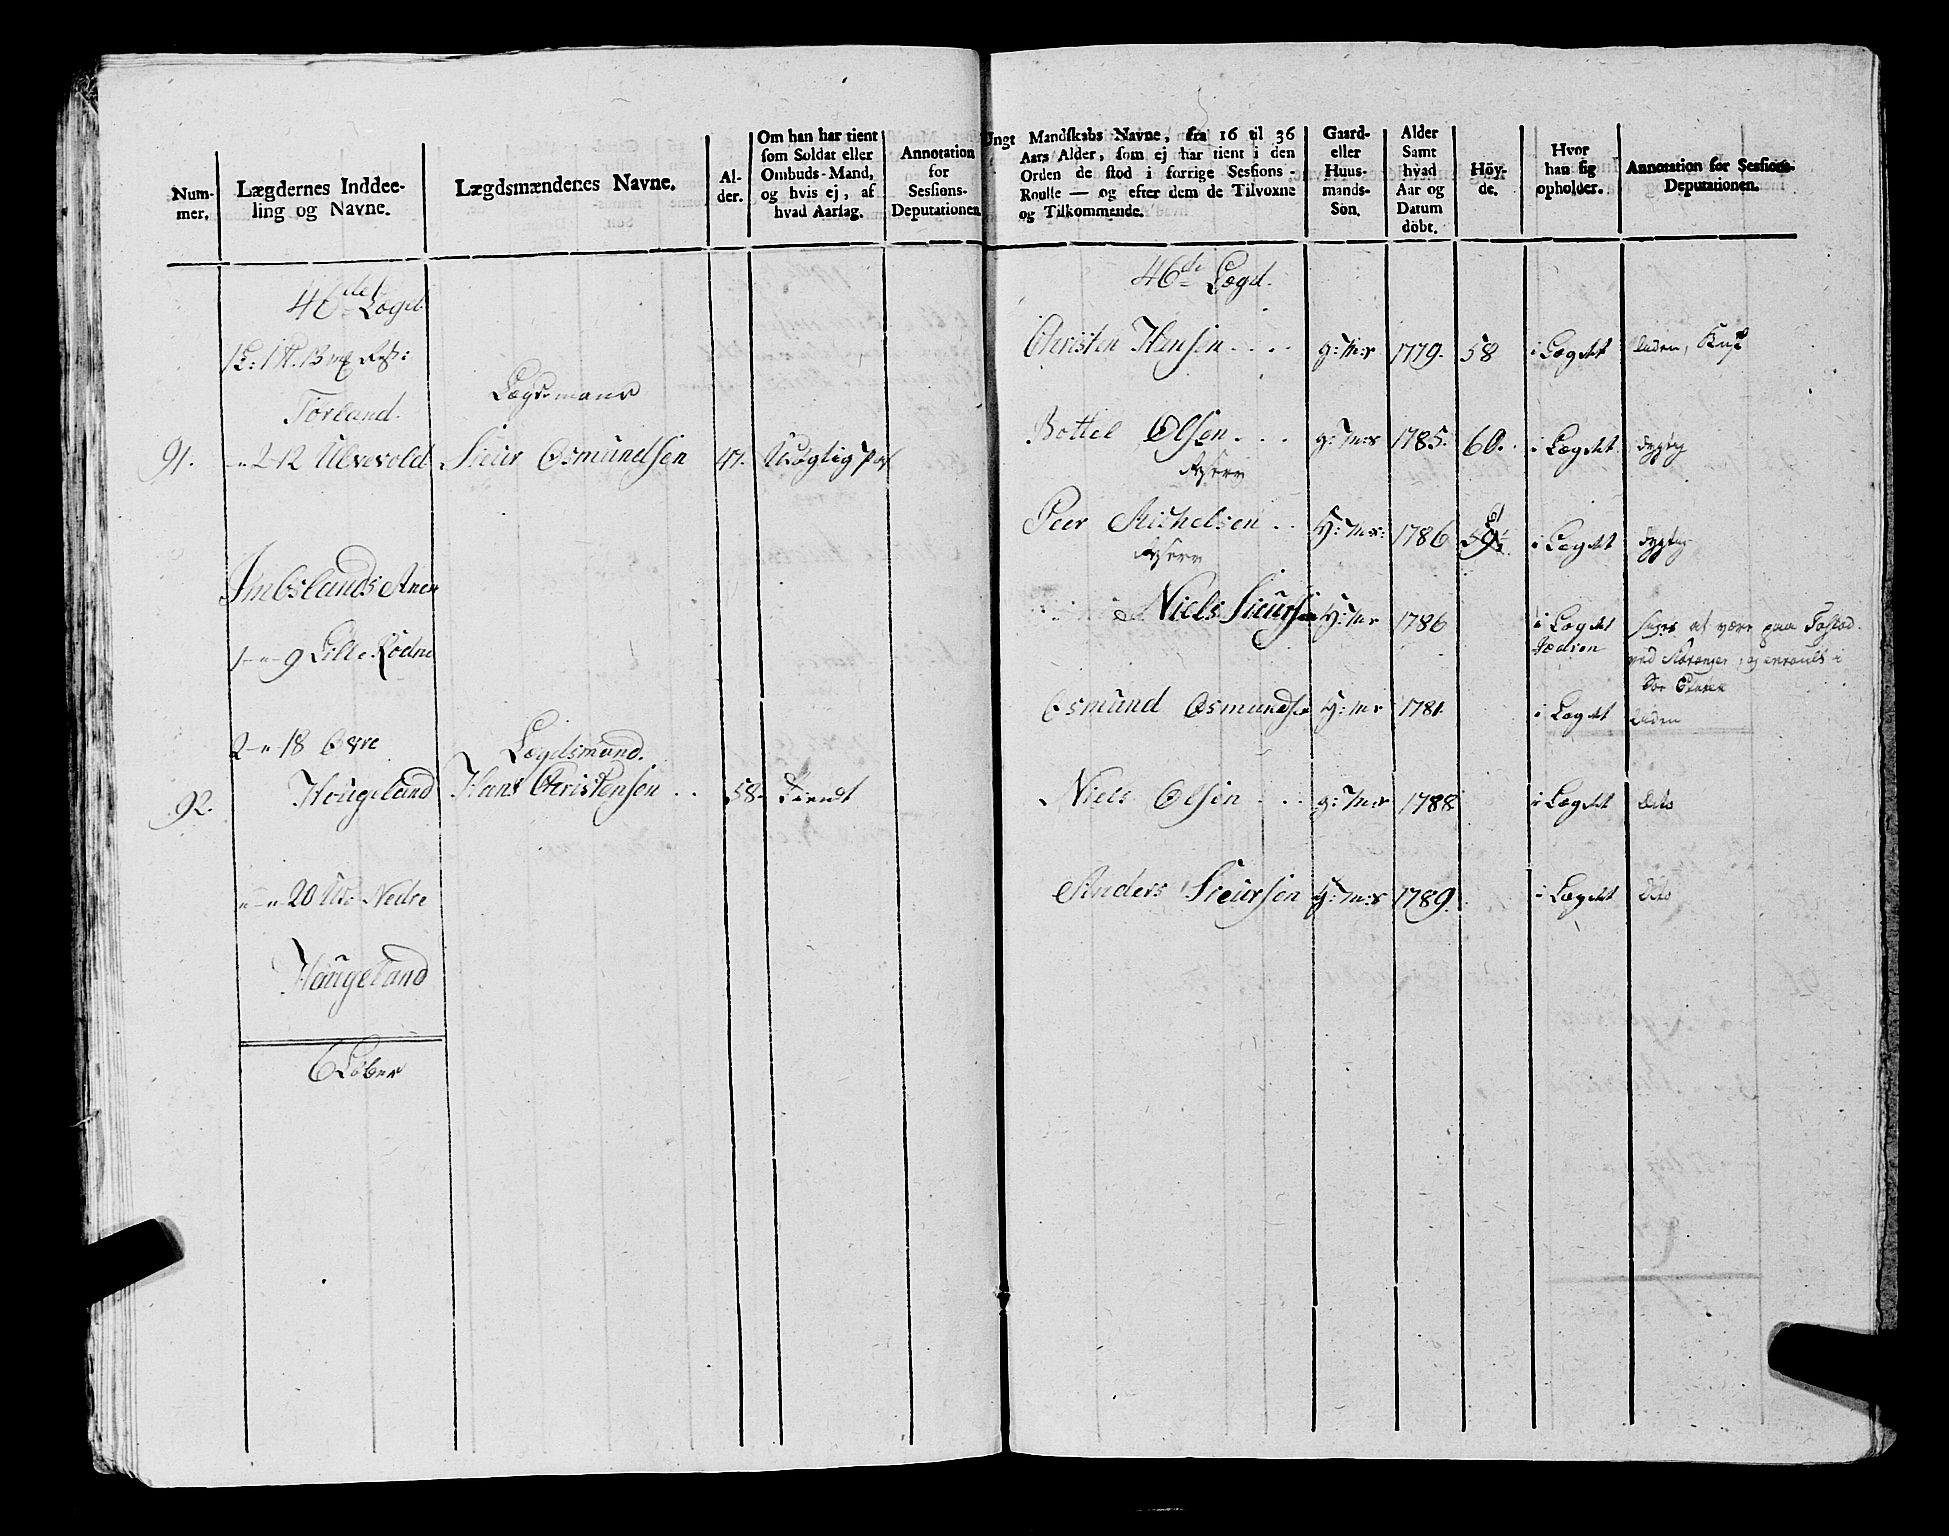 Num-
mer.
Lægdernes Inddee-
ling og Navne.
Lægdsmændenes Navne.
Al-
der.
Om han har tient
som Soldat eller
Ombuds-Mand,
og hvis ej, af
hvad Aarsag.
Annotation
for
Sessions-
Deputationen.
46de Lægd
1 L: 1 pd. 13 mk
Torland.
Lægdsmand
91. 2-12 Ulvevold Siur Osmundsen 47. Udygtig
Imbslands Anex
1-"-9 Lille Rødne
2-"-18 Øvre
Lægdsmand.
92. Hougeland Hans Christensen . . 58. Tiendt
"-"-20 Nedre
Hougeland
6 Løber
Ungt Mandskabs Navne, fra 16 til 36
Aars Alder, som ej har tient i den
Orden de stod i forrige Sessions-
Roulle — og efter dem de Tilvoxne
og Tilkommende.
Gaard-
eller
Huus-
mands-
Sön.
Alder
Samt
hvad
Aar og
Datum
döbt.
Höy-
de.
Hvor
han sig
opholder.
Annotation for Sessions-
Deputationen.
46de Lægd.
Christen Hansen . . . . g: M: s 1779. 58 i Lægdet liden,
Bottel Olsen . . . g: M: s 1785. 60. i Lægdet dygtig
Peer Michelsen . . H: M: s: 1786 i Lægdet dygtig
Niels Siursen H: M: s 1786 i Lægdet siges at være paa
ved Stavanger, og enroulls i
Osmund Osmundsen H: M: s 1781. i Lægdet liden
Niels Olsen . . . g: M: s 1788 i Lægdet dito
Anders Siursen H: M: s 1789. i Lægdet dito